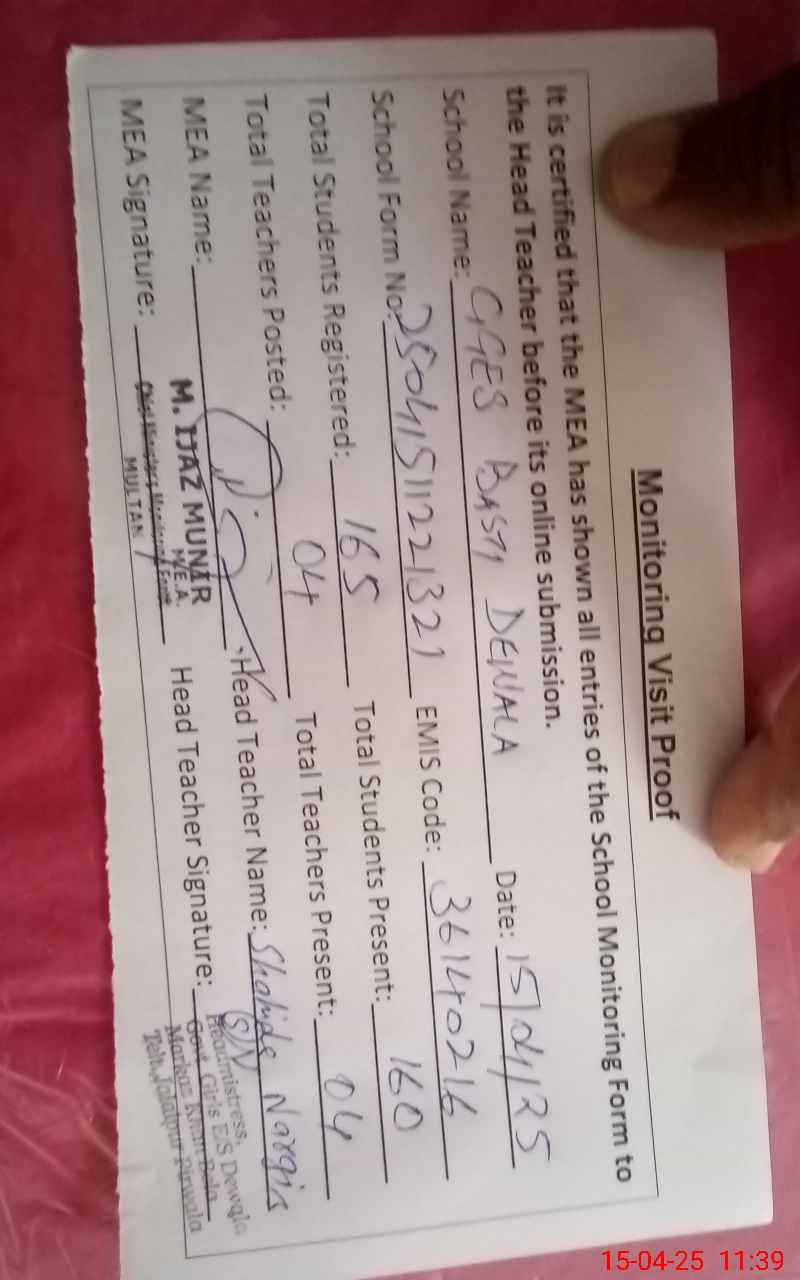 Monitoring Visit Proof
It is certified that the MEA has shown all entries of the School Monitoring Form to
the Head Teacher before its online submission.
School Name: GGES BASTI DEWALA Date: 15/04/25
School Form No: 25041511221321 EMIS Code: 36140216
Total Students Registered: 165 Total Students Present: 160
Total Teachers Posted: 04 Total Teachers Present: 04
MEA Name: M. IJAZ MUNIR Head Teacher Name: Shahida Nargis
M.E.A.
MEA Signature: Head Teacher Signature: S/N
MULTAN
Headmistress,
Govt. Girls E/S Dewala
Markaz Khan Bela
Teh. Jalalpur Pirwala
15-04-25 11:39